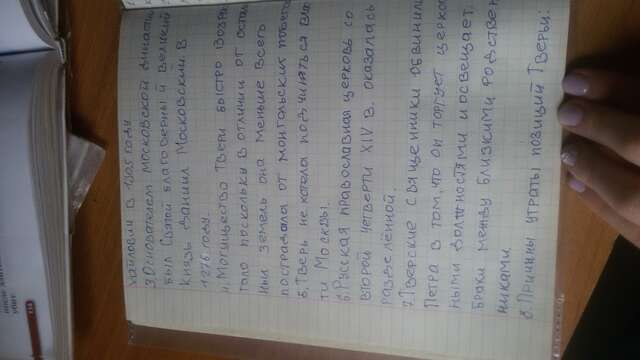 хайлович в 1305 году
3. Основателем московской династии
был Святой благоверный великий
князь Даниил Московский. В
1276 году.
4. Могущество Твери быстро возрас
тало поскольку в отличии от осталь
ных земель она меньше всего
пострадала от монгольских
5. Тверь не хотела подчиняться
ти Москвы.
6. Русская православная церковь со
второй четверти XIV в. оказалась
разделённой.
7. Тверские священники обвинили
Петра в том, что он торгует церков
ными должностями и освещает
браки между близкими родствен
никами.
8. Причины утраты позиций Твери: